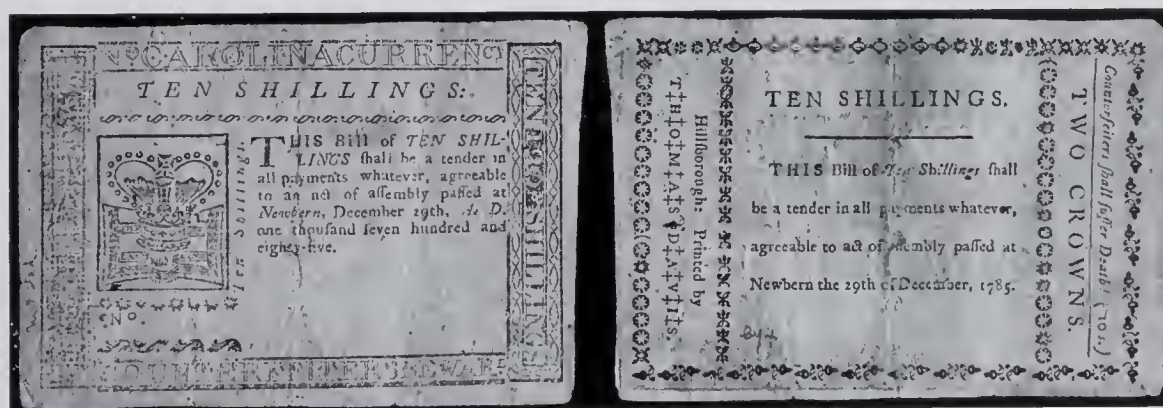 CAROLINA CURRENCY
TEN SHILLINGS:
Ten Shillings.
THIS Bill of TEN SHIL-
LINGS ſhall be a tender in
all payments whatever, agreeable
to an act of aſſembly paſſed at
Newbern, December 29th, A. D.
one thouſand ſeven hundred and
eighty-five.
No.
TEN SHILLINGS
COUNTERFEITERS BEWARE
T‡H‡O‡M‡A‡S D‡A‡V‡I‡S.
Hillſborough: Printed by
TEN SHILLINGS.
THIS Bill of Ten Shillings ſhall
be a tender in all payments whatever,
agreeable to act of aſſembly paſſed at
Newbern the 29th of December, 1785.
TWO CROWNS.
Counterfeiters ſhall ſuffer Death! (10s.)